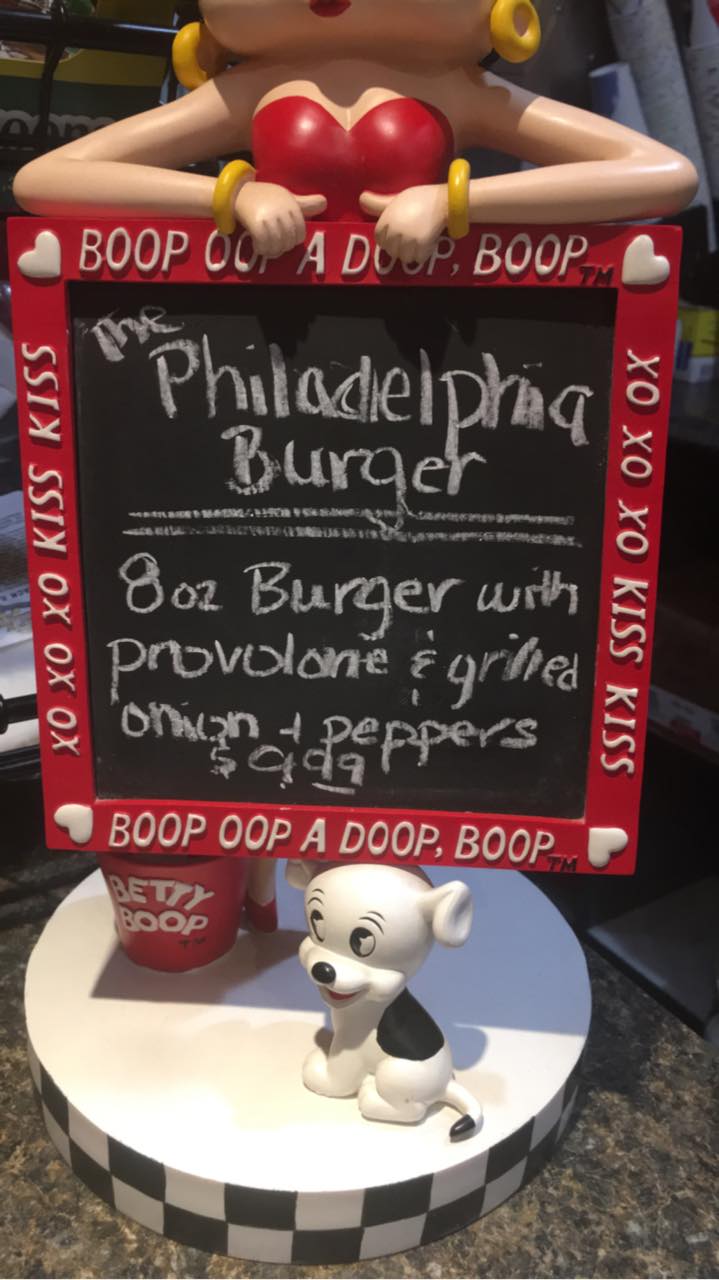 BOOP OOP A DOOP, BOOP TM
KISS KISS XO XO XO
XO XO XO KISS KISS
the
Philadelphia
Burger
8oz Burger with
provolone & grilled
onion + peppers
$ 9.99
BOOP OOP A DOOP, BOOP TM
BETTY
BOOP
TM